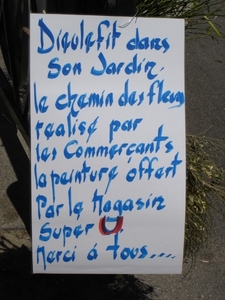 Dieulefit dans
son Jardin.
le chemin des fleurs
realisé par
les Commerçants
la peinture offert
Par le Magasin
Super U
Merci á tous....